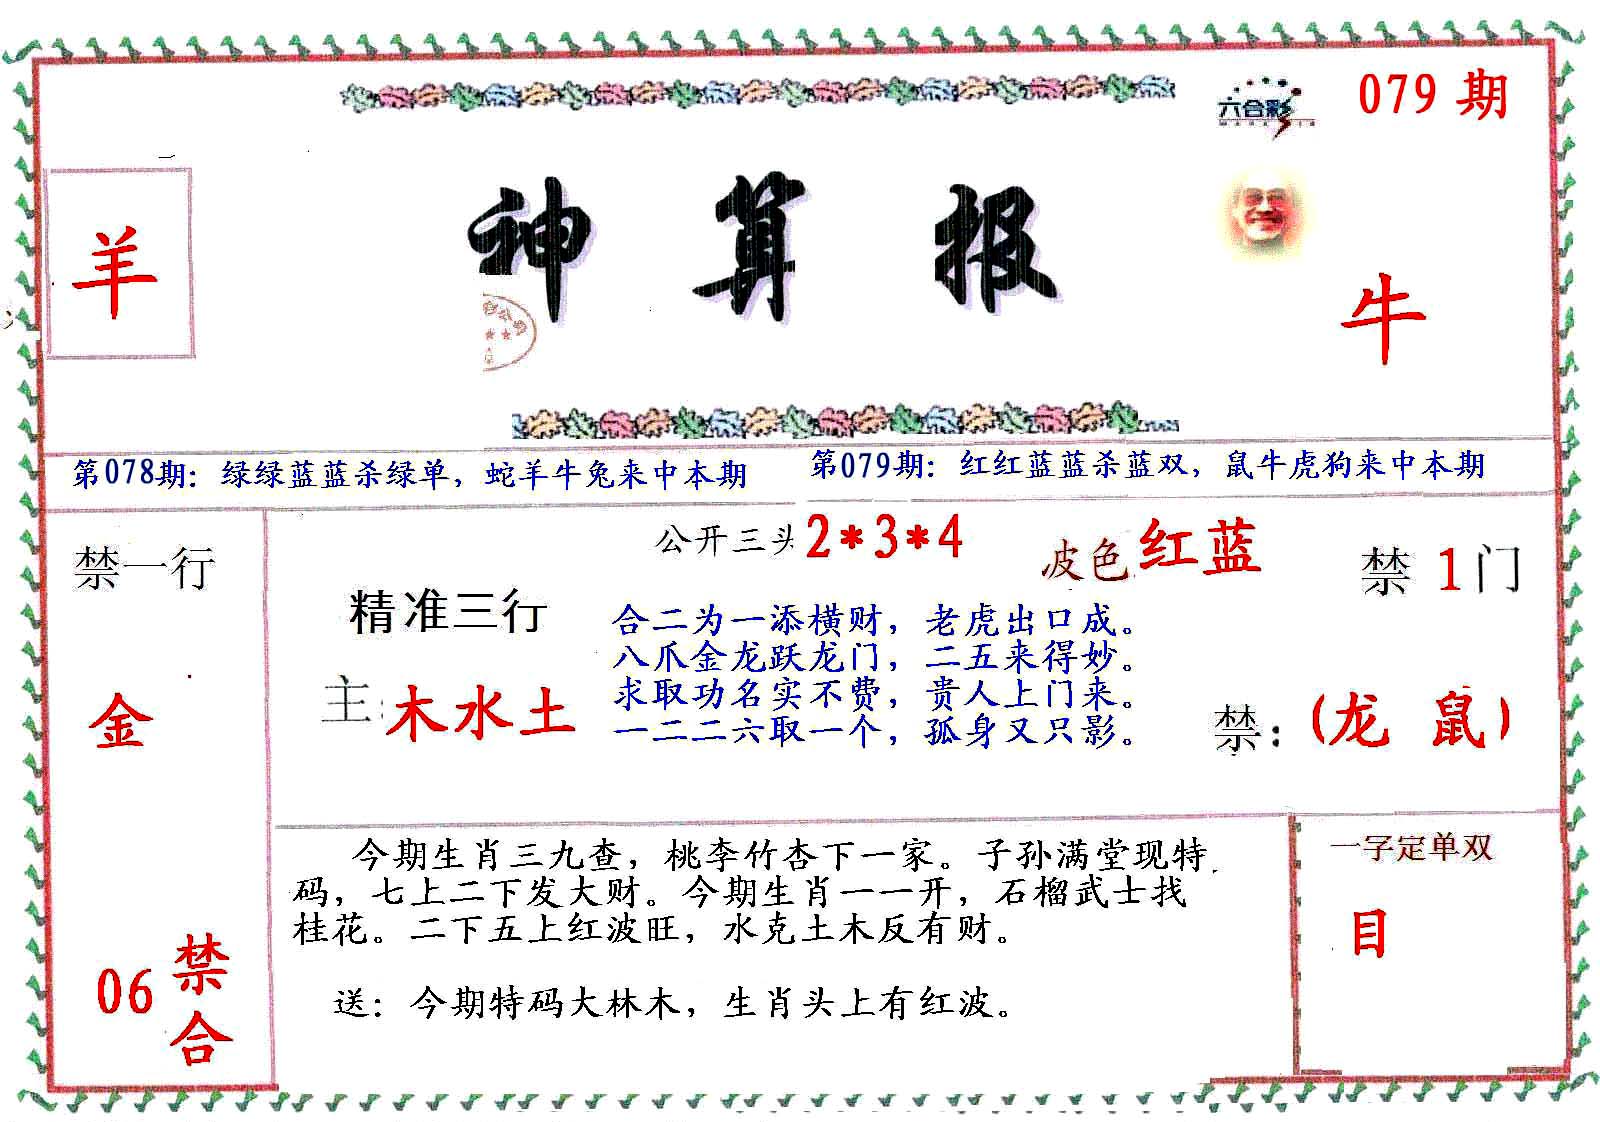 六合彩
079 期
羊
神算报
牛
第078期：绿绿蓝蓝杀绿单，蛇羊牛兔来中本期
第079期：红红蓝蓝杀蓝双，鼠牛虎狗来中本期
禁一行
金
06 禁合
公开三头 2*3*4
波色 红蓝
禁 1 门
精准三行
主：木水土
合二为一添横财，老虎出口成。
八爪金龙跃龙门，二五来得妙。
求取功名实不费，贵人上门来。
一二二六取一个，孤身又只影。
禁：（龙 鼠）
今期生肖三九查，桃李竹杏下一家。子孙满堂现特
码，七上二下发大财。今期生肖一一开，石榴武士找
桂花。二下五上红波旺，水克土木反有财。
送：今期特码大林木，生肖头上有红波。
一字定单双
目